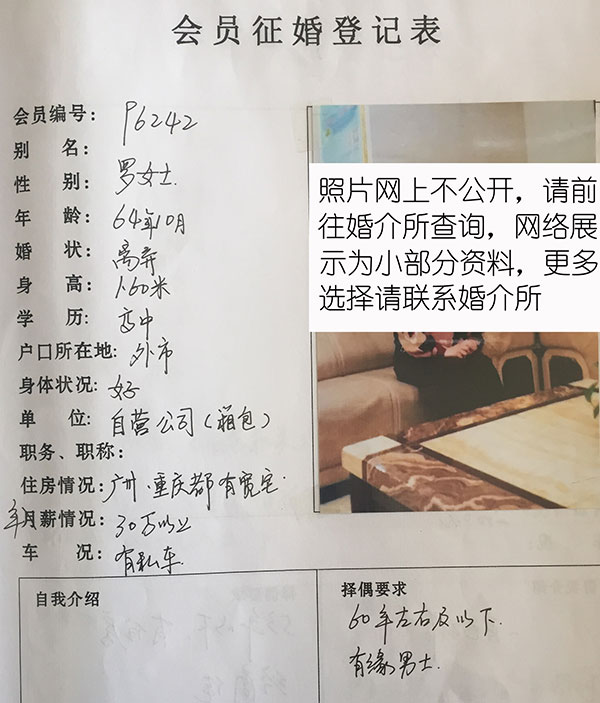 会员征婚登记表
会员编号: P6242
别 名:
性 别: 罗女士.
年 龄: 64年10月
婚 状: 离弃
身 高: 1.60米
学 历: 高中
户口所在地: 外市
身体状况: 好
单 位: 自营公司(箱包)
职务、职称:
住房情况: 广州.重庆都有宽宅.
年月薪情况: 30万以上
车 况: 有私车.
照片网上不公开，请前
往婚介所查询，网络展
示为小部分资料，更多
选择请联系婚介所
自我介绍
择偶要求
60年左右及以下.
有缘男士.